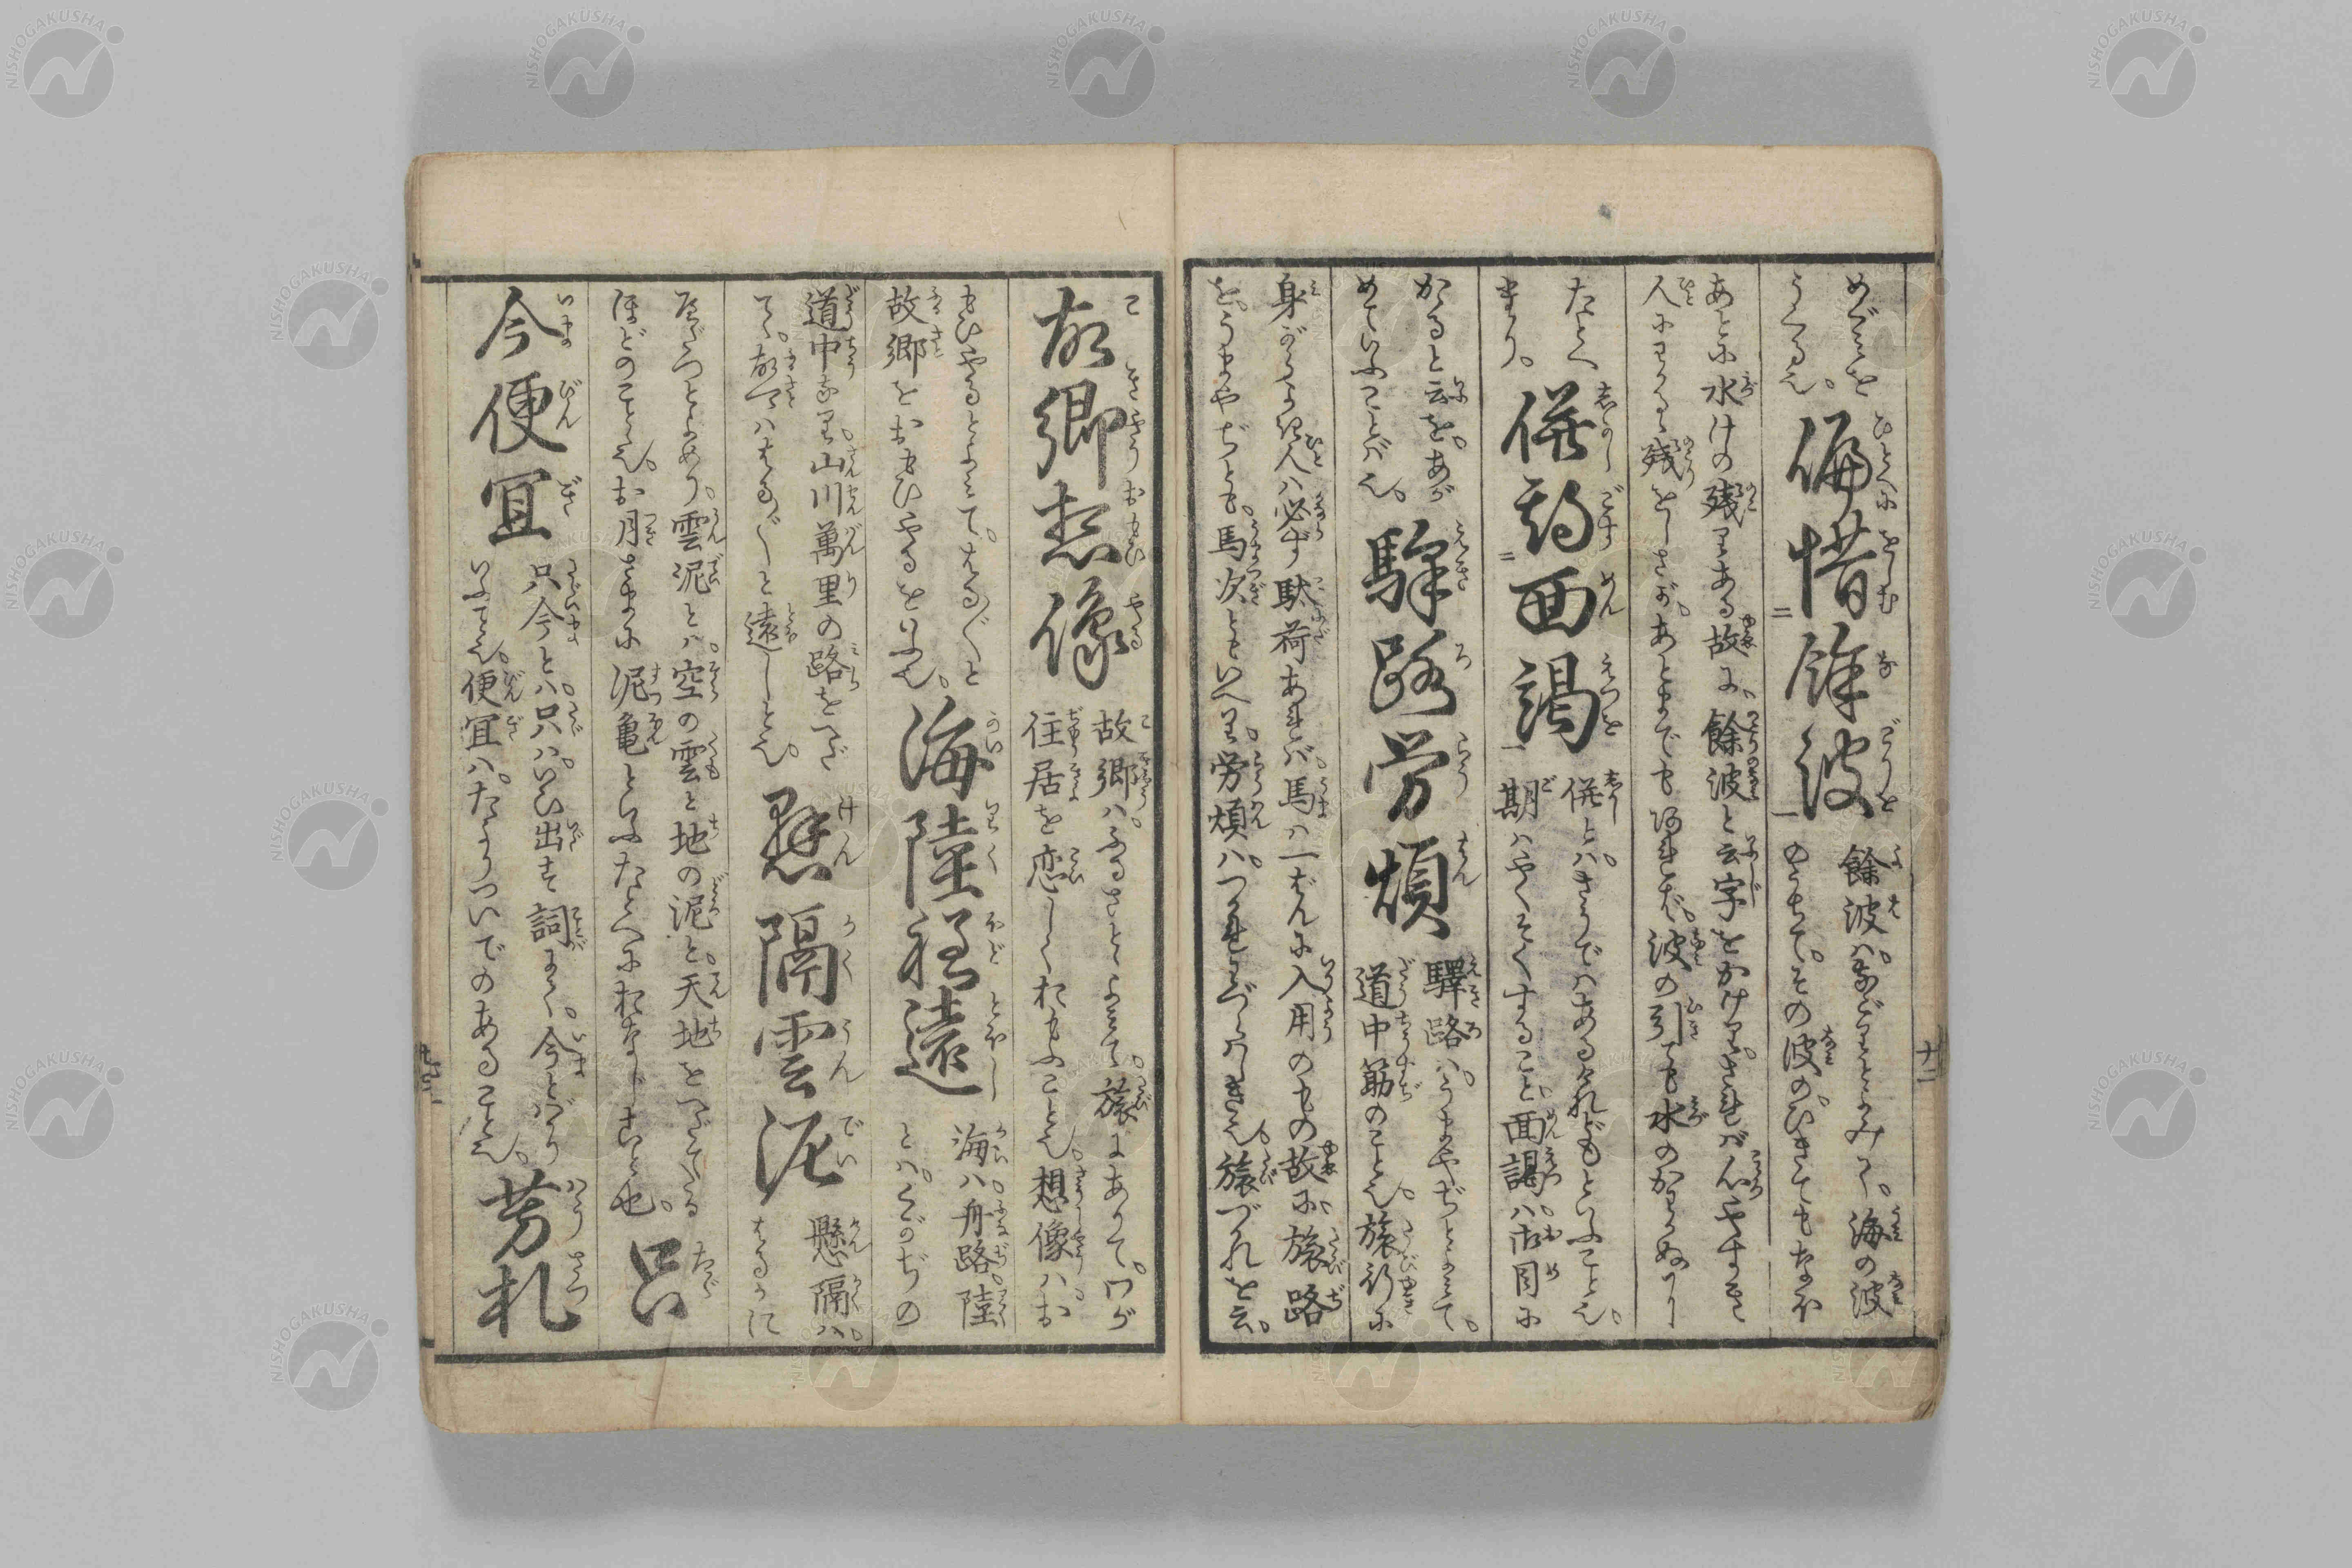 めぐみを
うくる也。
偏惜餘波
餘波ハ。なごりとよみて。海の波
のうちて。その波のひきてもなほ
あとに水けの残りある故に。餘波と云字をかけり。されバ心やすき
人にわかるゝ残をしさが。あとまでもわすれず。波の引ても水のかわかぬ
たとへ
併期面謁
併とハ。さうでハあるけれどもといふこと也。
期ハやくそくすること。面謁ハ。御目に
かゝると云を。あが
めていふことば也。
驛路労煩
驛路ハ。うまやぢとよみて。
道中筋のこと也。旅行に
身がるき人ハ必ず駄荷あれバ。馬ハ一ばんに入用のもの故に。旅路
を。うまやぢとも。馬次ともいへり。労煩ハ。つかれ
旅づかれを云。
故郷想像
故郷ハ。ふるさととよみて。旅にありて。わが
住居を恋しくおもふこと也。想像ハ。お
もひやるとよみて。はる〴〵と
故郷をおもひやるをいふ也。
海陸程遠
海ハ。舟路。陸
とハ。くがぢの
道中なり。山川萬里の路をへだ
てゝ。故郷ハはる〴〵と遠しと也。
懸隔雲泥
懸隔ハ。
はるかに
へだつとよめり。雲泥とハ。空の雲と地の泥と。天地をへだてたる
ほどのこと也。お月さまに泥亀といふたとへにおなじこと也。
只
今便宜
只今とハ。只ハ。いひ出す詞にて。今とばかり
いふこと也。便宜ハ。たよりついでのあること也。
芳札
十二